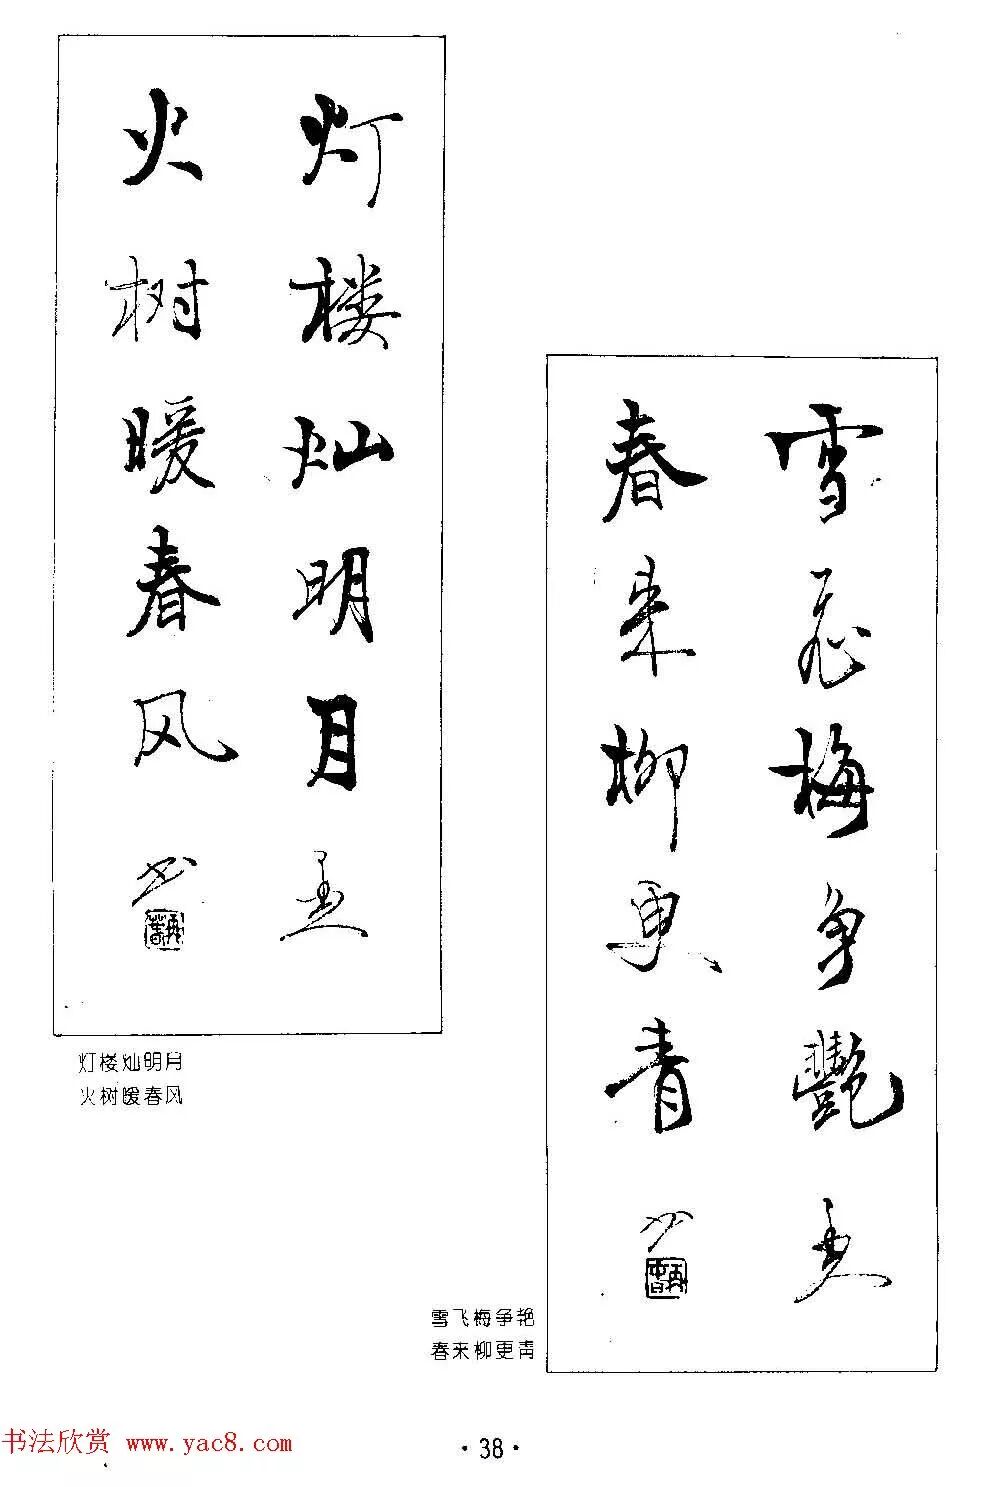 灯楼灿明月
火树暖春风
灯楼灿明月
火树暖春风
雪飞梅争艷
春来柳更青
雪飞梅争艳
春来柳更青
书法欣赏 www.yac8.com
·38·